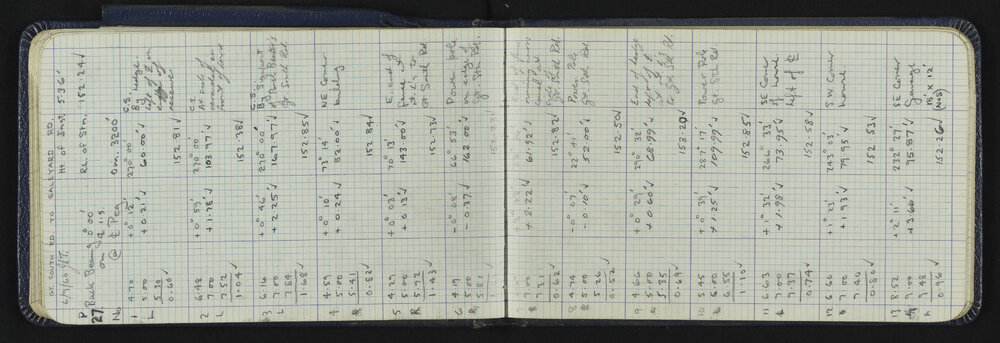 GT. SOUTH RD. TO SALEYARD RD.
6/9/60 J.T. Ht. of Inst. 5.36'
P 27. Back Bearing 0°00' R.L. of Stn. 152.24 ✓
on 1.5
No. @ ₵ Peg Om 3200'
1 4.70 +0° 12' ✓ 270° 00' C.S.
L 5.00 +0.21' ✓ 60.00' ✓
5.30
0.60 ✓ 152.81 ✓
2 6.48 +0° 59' ✓ 270° 00' C.S.
L 7.00 +1.78' ✓ 103.97' ✓
7.52
1.04 ✓ 152.38 ✓
3 6.16 +0° 46' ✓ 270° 00' C.S.
L 7.00 +2.25' ✓ 167.97' ✓
7.84 Gt. South Rd.
1.68 ✓ 152.85 ✓
4 4.59 +0° 10' ✓ 73° 14' NE Corner
R 5.00 +0.24' ✓ 82.00' ✓ building
5.41
0.82 ✓ 152.84 ✓
5 4.29 +0° 03' ✓ 70° 13' E. end of
R 5.00 +0.13' ✓ 143.00' ✓ fence at
5.72 Gt South Rd.
1.43 ✓ 152.73 ✓
6 4.19 -0° 08' ✓ 66° 53' Power pole
R 5.00 -0.37' ✓ 162.00' ✓ on edge of
5.81 Gt. Sth. Rd.
7.00 +2.22' ✓ 61.92' ✓
7.31
0.62 ✓ 152.82 ✓
8 4.74 -0° 07' ✓ 22° 47' Power Pole
R 5.00 -0.10' ✓ 52.00' ✓ Gt. Sth. Rd.
5.26
0.52 ✓ 152.50 ✓
9 4.66 +0° 29' ✓ 290° 32' End of hedge
L 5.00 +0.60' ✓ 68.99' ✓
5.35 Gt. Sth. Rd.
0.69 ✓ 153.20 ✓
10 5.45 +0° 39' ✓ 287° 17' Power Pole
L 6.00 +1.25' ✓ 109.99' ✓ Gt. Sth Rd.
6.55
1.10 ✓ 152.85 ✓
11 6.63 +1° 32' ✓ 266° 33' SE Corner
L 7.00 +1.98' ✓ 73.95' ✓ of home,
7.37 left of ₵
0.74 ✓ 152.58 ✓
12 6.60 +1° 23' ✓ 243° 03' S.W. Corner
L 7.00 +1.93' ✓ 79.95' ✓ home
7.40
0.80 ✓ 152.53 ✓
13 8.52 +2° 11' ✓ 232° 27' SE Corner
9.00 +3.66' ✓ 95.87' ✓ Garage
9.48 18' x 12'
0.96 ✓ 152.26 ✓ (N & S)